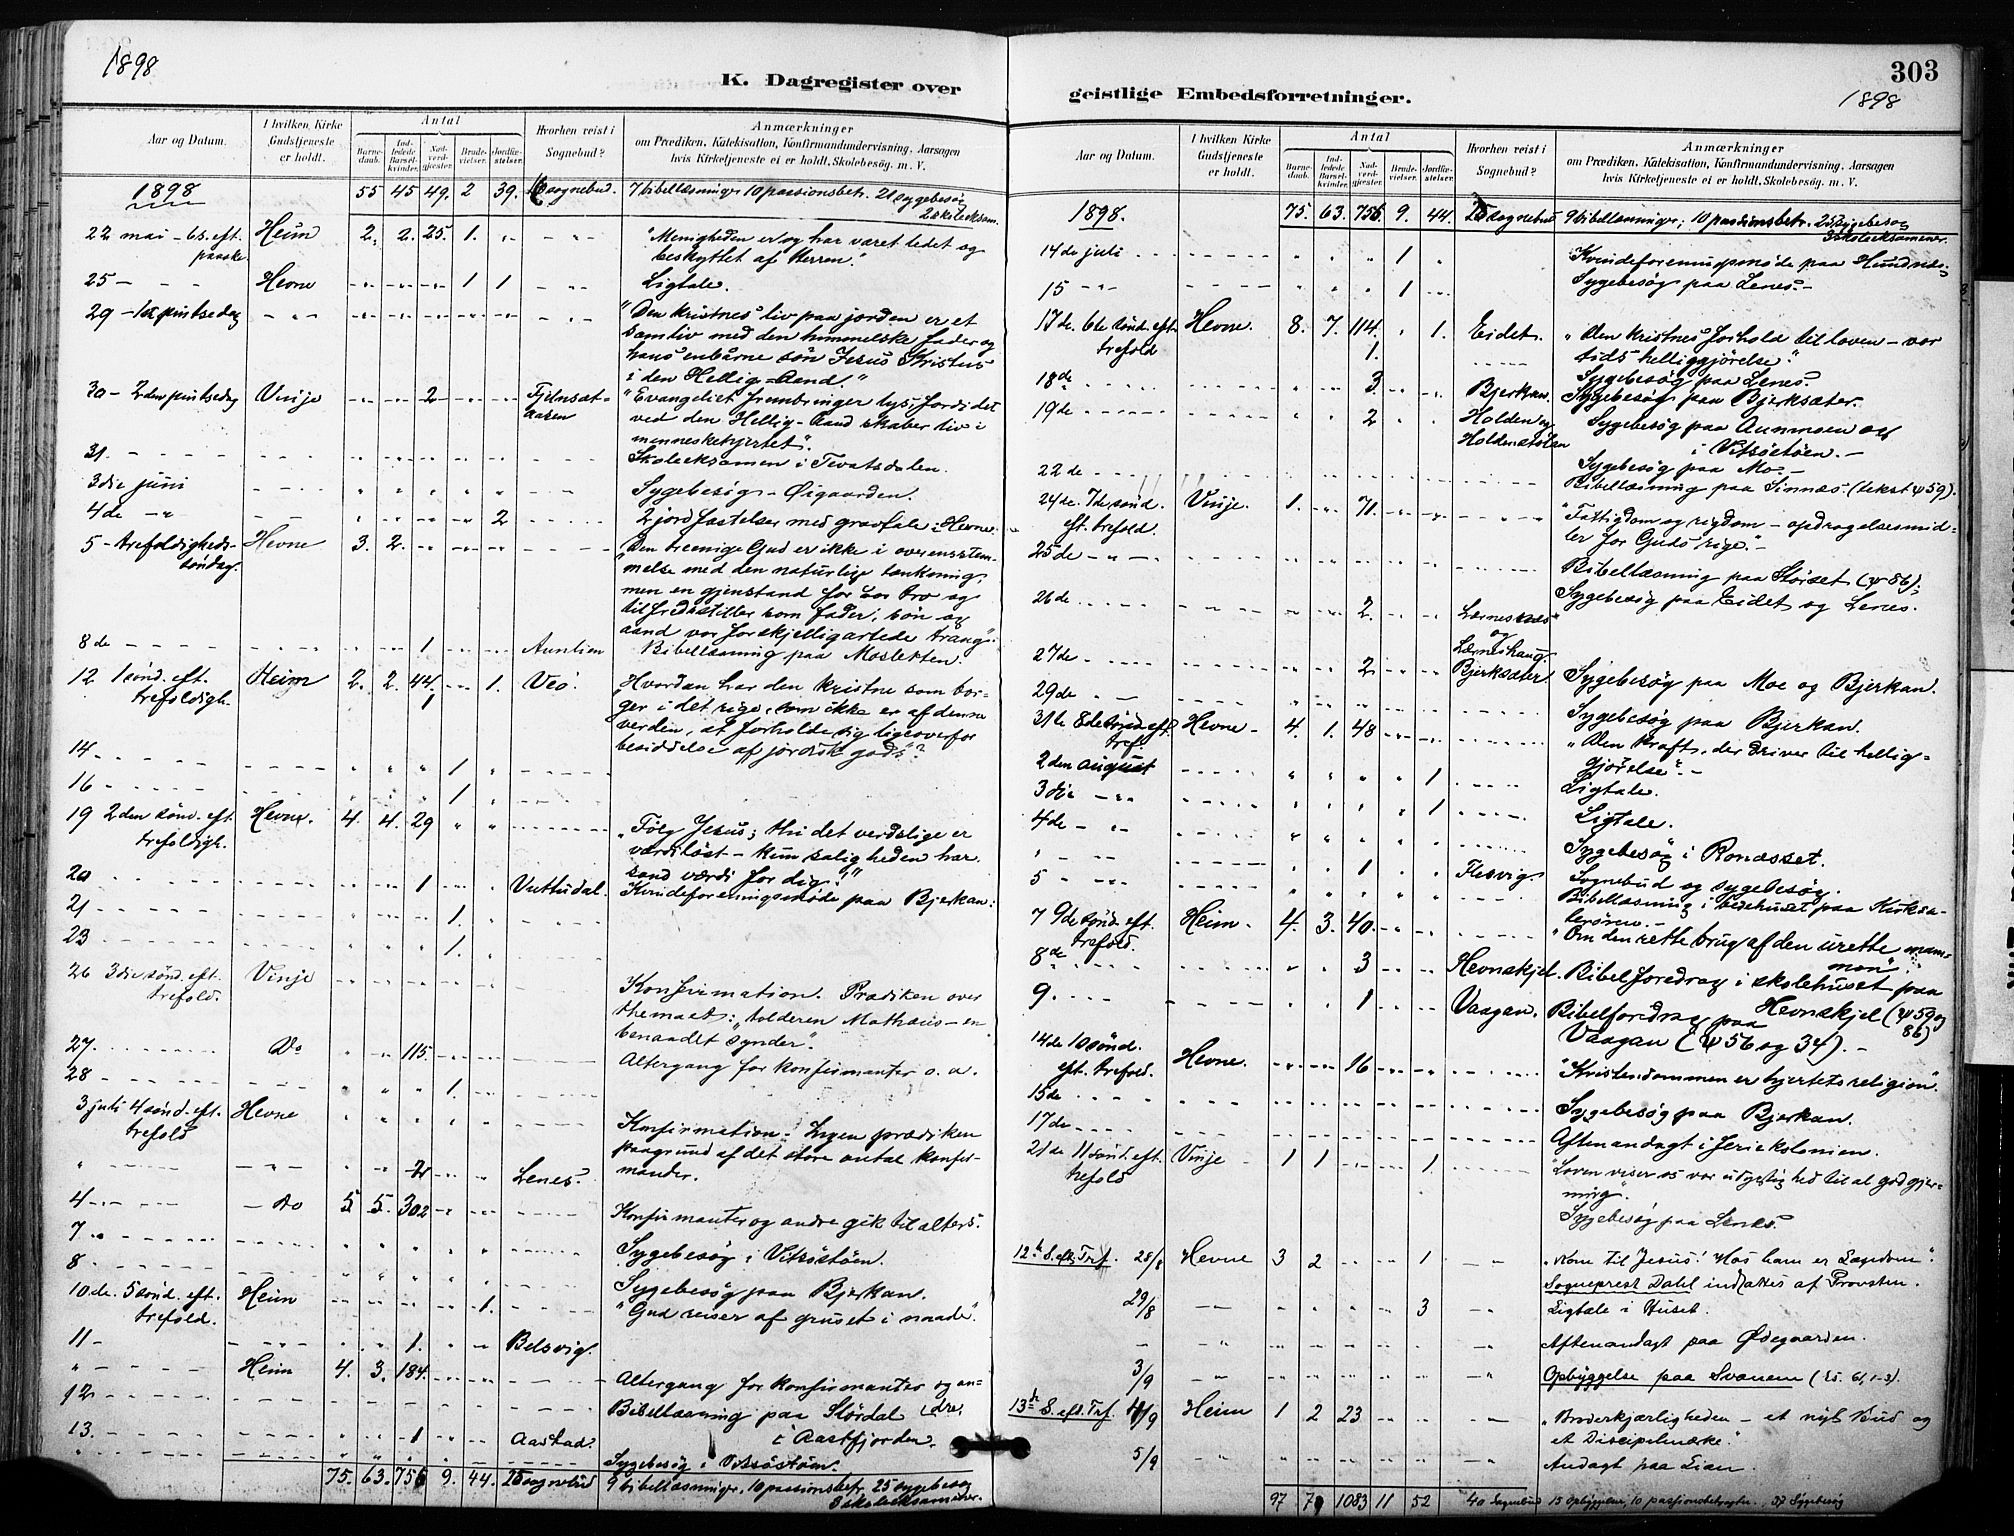 1898
K. Dagregister over
Aar og Datum.
I hvilken Kirke Gudstjeneste er holdt.
Antal
Barnedaab.
Indledede Barselkvinder.
Nadverdgjester.
Brudevielser.
Jordfæstelser.
Hvorhen reist i Sognebud?
Anmærkninger
om Prædiken, Katekisation, Konfirmandundervisning, Aarsagen
hvis Kirketjeneste ei er holdt, Skolebesøg m. V.
1898 55 45 49. 2 39. sognebud. 7 bibellæsninger 10 passionsbetr. 21 sygebesøg
2 skoleeksam.
22 mai – 6 s. eft. Heim 2. 2. 25. 1. "Menigheden er og har været ledet og
paaske beskyttet af Herren."
25 – Hevne 1 1 Ligtale.
29 – 1ste pintsedag "Den kristnes liv paa jorden er et
samliv med den himmelske fader og
hans enbårne søn Jesus Kristus
i den Hellig-Aand."
30 – 2den pintsedag Vinje 2 Fjelnsæt- "Evangeliet frembringer lys, fordi det
aasen ved den Hellig-Aand skaber liv i
menneskehjertet".
31. Skoleeksamen i Tevatsdalen.
3die juni Sygebesøg – Øigaarden.
4de 2 2 jordfæstelser med gravtale i Hevne.
5 – trefoldigheds- Hevne 3. 2. Den treenige Gud er ikke i overensstem-
søndag. melse med den naturlige tænkning
men en gjenstand for vor tro og
tilfredsstiller som fader, søn og
aand vor forskjelligartede trang".
8de 1 Aunlien Bibellæsning paa Mosletten.
12 1 sønd. eft. Heim 2. 2. 44. 1. Veø. Hvordan har den kristne som bor-
trefoldigh. 1 ger i det rige, som ikke er af denne
verden, at forholde sig ligeoverfor
besiddelse af jordisk gods"?
14 1
16 1
19 2den sønd. eft. Hevne. 4. 4. 29 "Følg Jesus; thi det verdslige er
trefoldigh. værdiløst – kun saligheden har
sand værdi for dig."
20 1 Vuttudal. Kvindeforeningsmøde paa Bjerkan.
21 1.
23 1.
26 3die sønd. eft. Vinje Konfirmation. Prædiken over
trefold. themaet: "tolderen Mathæus – en
benaadet synder".
27. Do 115 Altergang for konfirmanter o. a.
28 1.
3 juli 4 sønd. eft. Hevne Konfirmation. Ingen prædiken
trefold paagrund af det store antal konfir-
Lenes. mander.
4 do 5 5. 302 Konfirmanter og andre gik til alters.
7 Sygebesøg i Vitsøstøen.
8 Sygebesøg paa Bjerkan.
10de. 5 sønd. eft. Heim 1. "Gud reiser af gruset i naade".
trefold.
11 1. Belsvig.
Heim 4. 3. 184. Altergang for konfirmanter og an-
12 Bibellæsning paa Stördal (dre.
13. 1 Aastad. i Aastfjorden.
Sygebesøg i Vitsøstøen.
75. 63. 756 9. 44. sognebud 9 bibellæsninger. 10 passionsbetr. 25 sygebesøg
3 skoleeksamener.
303
1898
geistlige Embedsforretninger.
Aar og Datum.
I hvilken Kirke Gudstjeneste er holdt.
Antal
Barnedaab.
Indledede Barselkvinder.
Nadvergjester.
Brudevielser.
Jordfæstelser.
Hvorhen reist i Sognebud?
Anmærkninger
om Prædiken, Katekisation, Konfirmandundervisning, Aarsagen
hvis Kirketjeneste ei er holdt, Skolebesøg m. V.
1898. 75. 63. 756 9. 44. sognebud 9 bibellæsninger; 10 passionsbetr. 25 sygebesøg
3 skoleeksamener.
14de juli 1 Kvindeforeningsmøde paa Hundnes.
15 1 Sygebesøg paa Lenes. –
17de. 6te sønd. eft. Hevne. 8. 7. 114. 1. Eidet. "Den kristnes forhold til loven – vor
trefold 1. tids helliggjørelse".
Sygebesøg paa Lenes.
18de 3 Bjerkan. Sygebesøg paa Bjerksæter.
19de 2 Holden og Sygebesøg paa Aunmoen og
Holdenstølen i Vitsøstøen. –
22de Sygebesøg paa Mo. –
Bibellæsning paa Sinnæs. (tekst ψ 59).
24de. 7de sønd. Vinje. 1. 71. "Fattigdom og rigdom – opdragelsesmid-
eft. trefold. ler for Guds rige." –
25de Bibellæsning paa Störset (ψ 86).
26de 2. Lærnesnæs Sygebesøg paa Eidet og Lenes.
og
Lærneshaug.
27de. 2 Bjerksæter. Sygebesøg paa Moe og Bjerkan.
29de Sygebesøg paa Bjerkan.
31te 8de sønd. eft. Hevne 4. 1. 48 "Den kraft, der driver til hellig-
tref. gjørelse". –
2den august 1 Ligtale.
3die 1 Ligtale.
4de Sygebesøg i Ronæsset.
5 1 Flesvig Sognebud og sygebesøg.
Bibellæsning i bedehuset paa Kirksæ-
terøren. –
7 9de sønd. eft. Heim 4. 3. 40. "Om den rette brug af den urette mam-
trefold. mon".
8de 3 Hevnskjel. Bibelforedrag i skolehuset paa
Hevnskjel (ψ 59 og
86)
9. 1 Vaagan. Bibelforedrag paa
Vaagan (ψ 56 og 34). –
14de 10 sønd. Hevne. 16 "Kristendommen er hjertets religion".
eft. trefold.
15de Sygebesøg paa Bjerkan.
17de Aftenandagt i feriekolonien.
21de 11 sønd. eft. Vinje 1 1 1. "Loven viser os vor udygtighed til at god gjer-
trefold ning".
Sygebesøg paa Lenes.
12te S. eft. Tref. 28/8 Hevne 3 2 1 "Kom til Jesus! Hos ham er Lægedom".
Sogneprest Dahl indsættes af Provsten.
29/8 3 Ligtale i Huset.
Aftenandagt paa Ødegaarden.
3/9 Opbyggelse paa Svanem (Es. 61, 1-3).
13de S. eft. Tref. 4/9 Heim 1 2 23 "Broderkjærligheden – et nyt Bud og
et Discipelmærke."
5/9 Andagt paa Lian
97 1083 11 52 40 Sognebud 15 Opbyggelser, 10 passionsbetragtn., 37 Sygebesøg